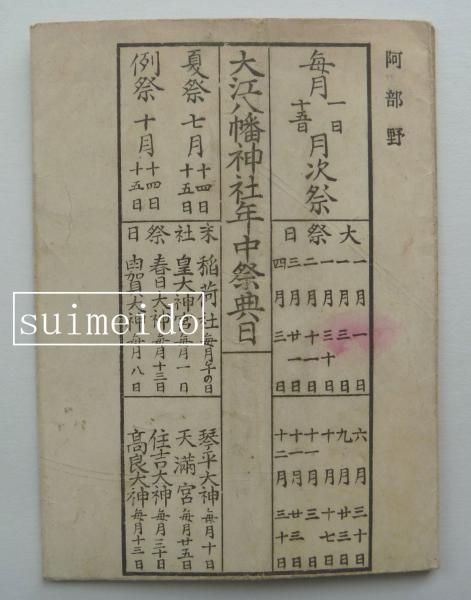 阿部野
毎月 一日 十五日 月次祭
大祭日
一月一日
一月三日
一月三十日
二月十一日
三月廿一日
四月三日
六月三十日
九月廿三日
十月十七日
十一月三日
十一月廿三日
十二月三十日
大江八幡神社年中祭典日
夏祭 七月 十四日 十五日
例祭 十月 十四日 十五日
末社祭日
稲荷社 毎月午の日
皇大神宮 毎月一日
春日大神 毎月十三日
由賀大神 毎月八日
琴平大神 毎月十日
天満宮 毎月廿五日
住吉大神 毎月三十日
高良大神 毎月十三日
suimeido